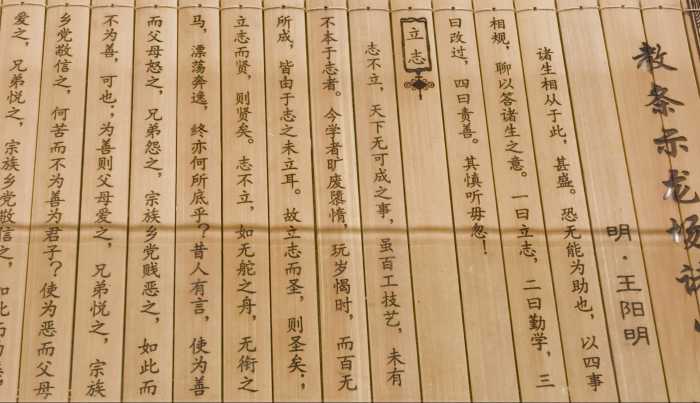 教条示龙场诸
明·王阳明
诸生相从于此，甚盛。恐无能为助也，以四事
相规，聊以答诸生之意。一曰立志，二曰勤学，三
曰改过，四曰责善。其慎听毋忽！
立志
志不立，天下无可成之事，虽百工技艺，未有
不本于志者。今学者旷废隳惰，玩岁愒时，而百无
所成，皆由于志之未立耳。故立志而圣，则圣矣；
立志而贤，则贤矣。志不立，如无舵之舟，无衔之
马，漂荡奔逸，終亦何所底乎？昔人有言，使为善
而父母怒之，兄弟怨之，宗族乡党贱恶之，如此而
不为善，可也；为善则父母爱之，兄弟悦之，宗族
乡党敬信之，何苦而不为善为君子？使为恶而父母
爱之，兄弟悦之，宗族乡党敬信之，如此而为